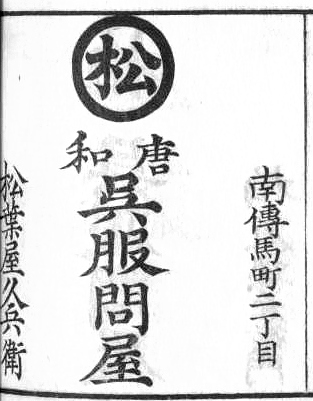 南傳馬町二丁目
松
唐和
呉服問屋
松葉屋久兵衛